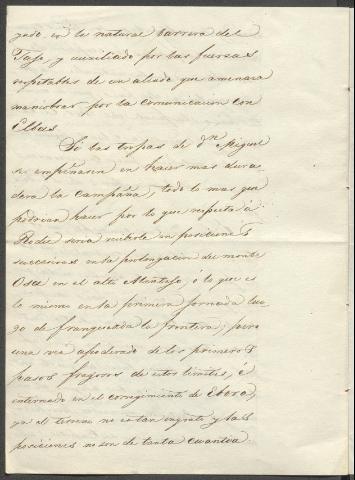 yado en la natural barrera del
Tajo y auxiliado por las fuerzas
respetables de un aliado que amenaza
maniobrar por la comunicacion con
Elbas.
Si las tropas de dn Miguel
se empeñasen en hacer mas dura
dera la campaña, todo lo mas que
podrian hacer por lo que respecta á
Rodil seria recibirle en posiciones
succesivas en la prolongacion del monte
Osa en el alto Alentejo, ó lo que es
lo mismo en la primera jornada lue
go de franqueada la frontera; pero
una vez apoderado de los primeros
pasos fragosos de estos limites, é
internado en el corregimiento de Ebora,
ya el terreno no es tan ingrato y las
posiciones no son de tanta cuantia.